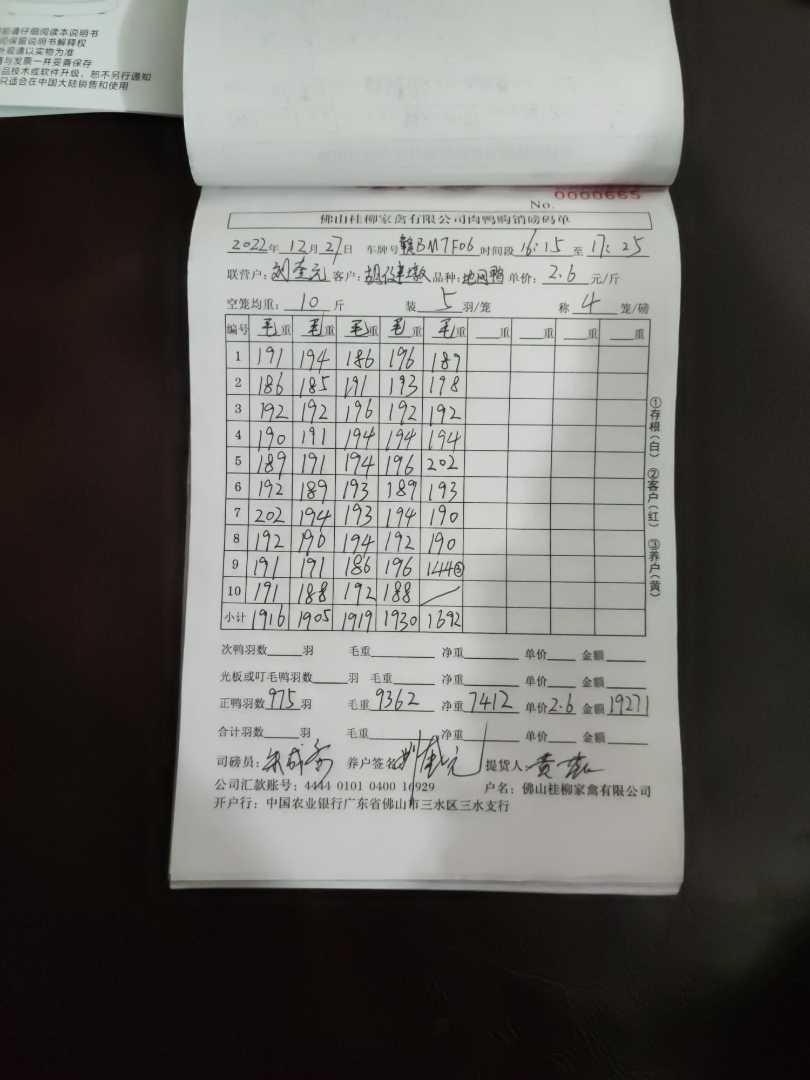 请仔细阅读本说明书
保留说明书解释权
外观请以实物为准
与发票一并妥善保存
品技术或软件升级，恕不另行通知
只适合在中国大陆销售和使用
No. 0000665
佛山桂柳家禽有限公司肉鸭购销磅码单
2022年12月27日 车牌号赣BM7F06时间段16:15至17:25
联营户：刘奎元 客户： 品种：地网鸭 单价：2.6元/斤
空笼均重：10斤 装5羽/笼 称4笼/磅
编号 毛重 毛重 毛重 毛重 毛重 重 重 重 重
1 191 194 186 196 189
2 186 185 191 193 198
3 192 192 196 192 192
4 190 191 194 194 194
5 189 191 194 196 202
6 192 189 193 189 193
7 202 194 193 194 190
8 192 190 194 192 190
9 191 191 186 196 144③
10 191 188 192 188 /
小计 1916 1905 1919 1930 1692
①存根（白） ②客户（红） ③养户（黄）
次鸭羽数 羽 毛重 净重 单价 金额
光板或叮毛鸭羽数 羽 毛重 净重 单价 金额
正鸭羽数975羽 毛重9362 净重7412 单价2.6 金额19271
合计羽数 羽 毛重 净重 单价 金额
司磅员： 养户签名刘奎元 提货人
公司汇款账号：4444 0101 0400 16929 户名：佛山桂柳家禽有限公司
开户行：中国农业银行广东省佛山市三水区三水支行